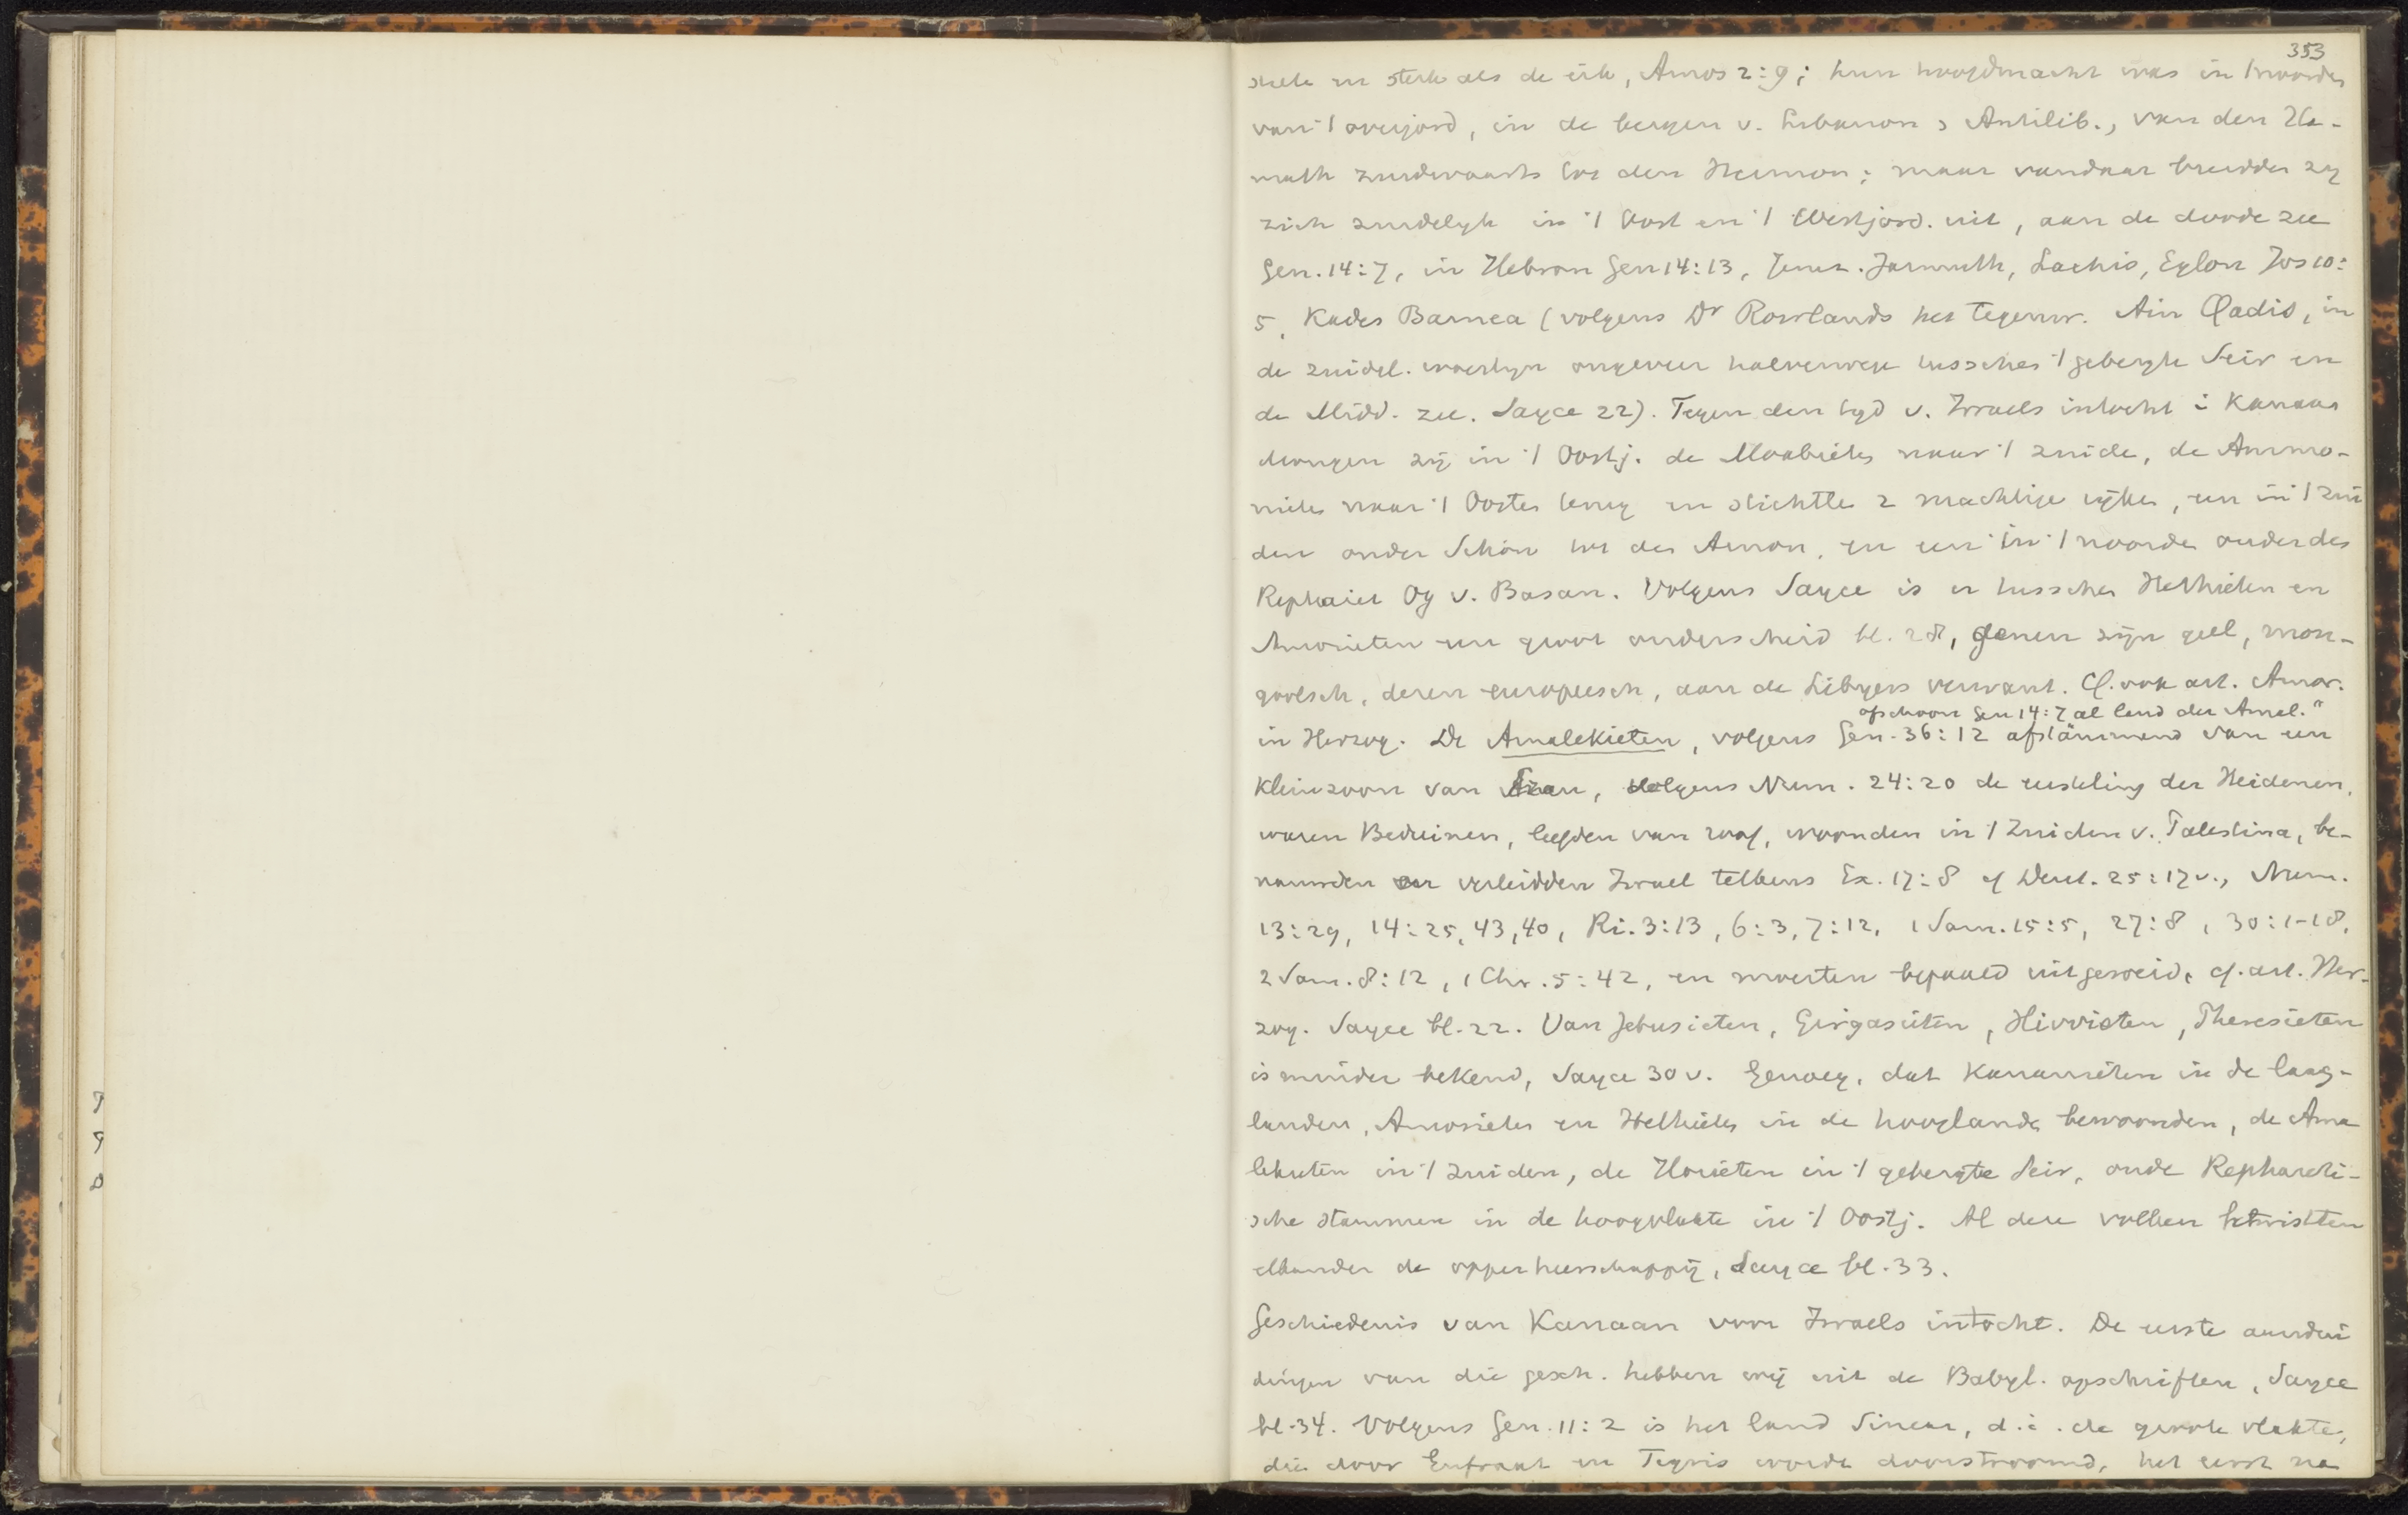 353
en sterk als de eik, Amos 2:9; hun hoofdmacht was in 't noorden
van 't overjord, in de bergen v. Libanon & Antilib., van den Ha-
math zuidwaarts tot den Hermon; maar vandaar breidden zy
zich zuidelyk in 't Oost en 't Westjord. uit, aan de doode zee
Gen. 14:7, in Hebron Gen 14:13, Jeruz. Jarmuth, Lachis, Eglon Jos 10:
5, Kades Barnea (volgens Dr Rowlands het tegenw. Ain Qadis, in
de zuidel. woestyn ongeveer halverwege tusschen 't gebergte Seir en
de Midd. zee. Sayce 22). Tegen den tyd v. Israels intocht i Kanaan
drongen zij in 't Oostj. de Moabieten naar 't zuide, de Ammo-
nieten naar 't Oosten terug en stichtten 2 machtige ryken, een in 't zui
den onder Sihon tot den Arnon, en een in 't noorden onder den
Rephaiet Og v. Basan. Volgens Sayce is er tusschen Hethieten en
Amorieten een groot onderscheid bl. 28, genen zijn geel, mon-
goolsch, dezen europeesch, aan de Libyers verwant. Cf. ook art. Amor.
ofschoon Gen 14:7 al land der Amal."
in Herzog. De Amalekieten, volgens Gen. 36:12 afstammend van een
Kleinzoon van Ezau, volgens Num. 24:20 de eersteling der Heidenen,
waren Beduinen, leefden van roof, woonden in 't Zuiden v. Palestina, be-
nauwden en verleidden Israel telkens Ex. 17:8 cf Deut. 25:17 v., Num.
13:29, 14:25, 43, 40, Ri. 3:13, 6:3, 7:12, 1 Sam. 15:5, 27:8, 30:1-18,
2 Sam. 8:12, 1 Chr. 5:42, en moesten bepaald uitgeroeid, cf. art. Her-
zog. Sayce bl. 22. Van Jebusieten, Girgasieten, Hivvieten, Pheresieten
is minder bekend, Sayce 30 v. Genoeg, dat Kanaanieten in de laag-
landen, Amorieten en Hethieten in de hooglanden bewoonden, de Ama
lekieten in 't zuiden, de Horieten in 't gebergte Seir, oude Rephaeti-
sche stammen in de hoogvlakte in 't Oostj. Al deze volken betwistten
elkander de opperheerschappij, Sayce bl. 33.
Geschiedenis van Kanaan voor Israels intocht. De eerste aandui
dingen van die gesch. hebben wij uit de Babyl. opschriften, Sayce
bl. 34. Volgens Gen. 11:2 is het land Sinear, d.i. de groote vlakte,
die door Eufraat en Tigris wordt doorstroomd, het eerst na